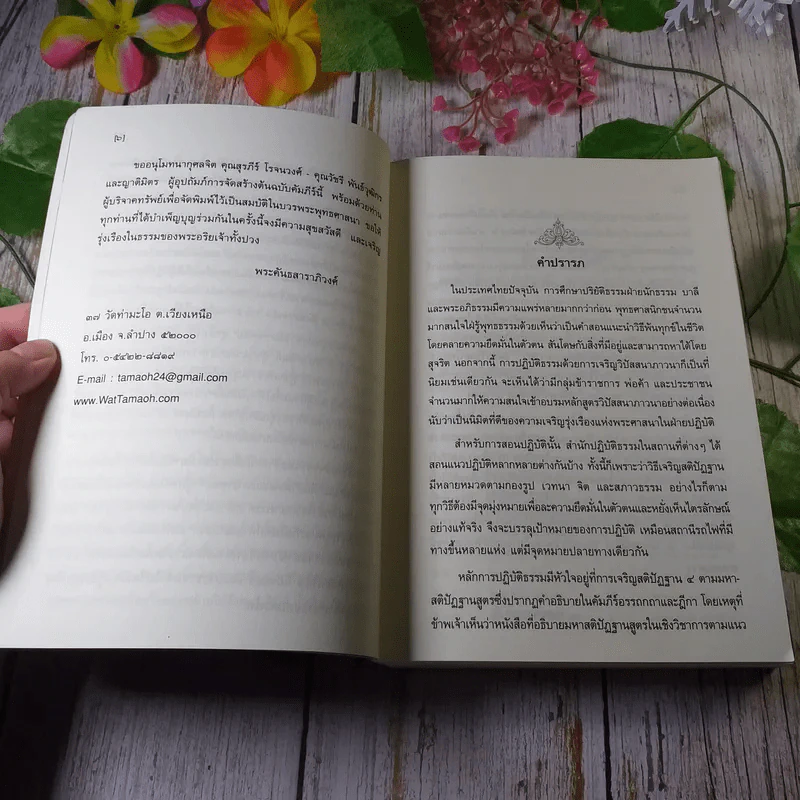 [๖]
ขออนุโมทนากุศลจิต คุณสุรภีร์ โรจนวงศ์ - คุณวัชรี พันธ์วุฒิกร
และญาติมิตร ผู้อุปถัมภ์การจัดสร้างต้นฉบับคัมภีร์นี้ พร้อมด้วยท่าน
ผู้บริจาคทรัพย์เพื่อจัดพิมพ์ไว้เป็นสมบัติในบวรพระพุทธศาสนา ขอให้
ทุกท่านที่ได้บำเพ็ญบุญร่วมกันในครั้งนี้จงมีความสุขสวัสดี และเจริญ
รุ่งเรืองในธรรมของพระอริยเจ้าทั้งปวง
พระคันธสาราภิวงศ์
๓๗ วัดท่ามะโอ ต.เวียงเหนือ
อ.เมือง จ.ลำปาง ๕๒๐๐๐
โทร. ๐-๕๔๒๒-๘๘๑๙
E-mail : tamaoh24@gmail.com
www.WatTamaoh.com
คำปรารภ
ในประเทศไทยปัจจุบัน การศึกษาปริยัติธรรมฝ่ายนักธรรม บาลี
และพระอภิธรรมมีความแพร่หลายมากกว่าก่อน พุทธศาสนิกชนจำนวน
มากสนใจใฝ่รู้พุทธธรรมด้วยเห็นว่าเป็นคำสอนแนะนำวิธีพ้นทุกข์ในชีวิต
โดยคลายความยึดมั่นในตัวตน สันโดษกับสิ่งที่มีอยู่และสามารถหาได้โดย
สุจริต นอกจากนี้ การปฏิบัติธรรมด้วยการเจริญวิปัสสนาภาวนาก็เป็นที่
นิยมเช่นเดียวกัน จะเห็นได้ว่ามีกลุ่มข้าราชการ พ่อค้า และประชาชน
จำนวนมากให้ความสนใจเข้าอบรมหลักสูตรวิปัสสนาภาวนาอย่างต่อเนื่อง
นับว่าเป็นนิมิตที่ดีของความเจริญรุ่งเรืองแห่งพระศาสนาในฝ่ายปฏิบัติ
สำหรับการสอนปฏิบัตินั้น สำนักปฏิบัติธรรมในสถานที่ต่างๆ ได้
สอนแนวปฏิบัติหลากหลายต่างกันบ้าง ทั้งนี้ก็เพราะว่าวิธีเจริญสติปัฏฐาน
มีหลายหมวดตามกองรูป เวทนา จิต และสภาวธรรม อย่างไรก็ตาม
ทุกวิธีต้องมีจุดมุ่งหมายเพื่อละความยึดมั่นในตัวตนและหยั่งเห็นไตรลักษณ์
อย่างแท้จริง จึงจะบรรลุเป้าหมายของการปฏิบัติ เหมือนสถานีรถไฟที่มี
ทางขึ้นหลายแห่ง แต่มีจุดหมายปลายทางเดียวกัน
หลักการปฏิบัติธรรมมีหัวใจอยู่ที่การเจริญสติปัฏฐาน ๔ ตามมหา-
สติปัฏฐานสูตรซึ่งปรากฏคำอธิบายในคัมภีร์อรรถกถาและฎีกา โดยเหตุที่
ข้าพเจ้าเห็นว่าหนังสือที่อธิบายมหาสติปัฏฐานสูตรในเชิงวิชาการตามแนว